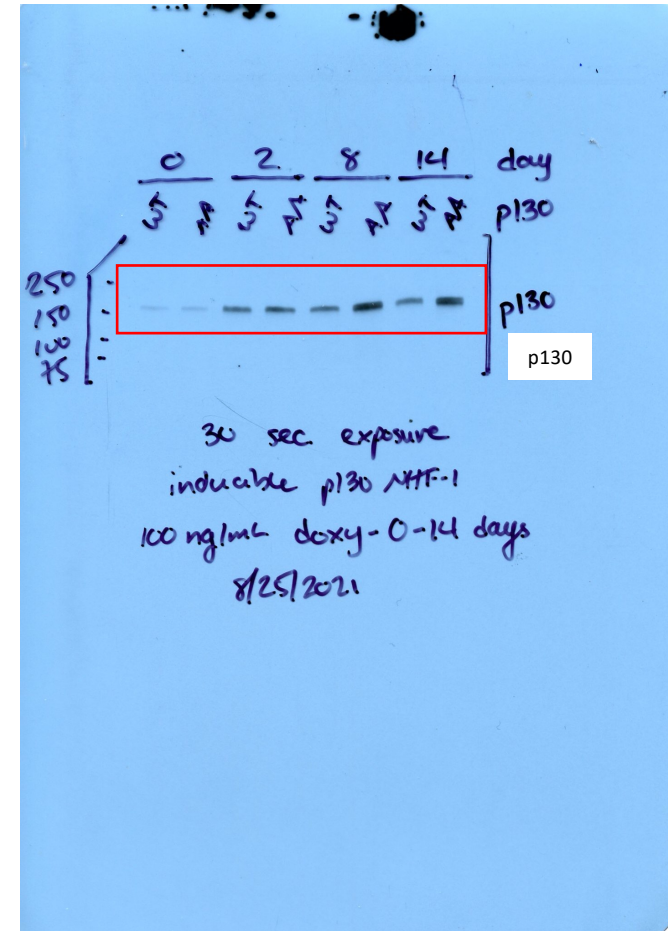 0 2 8 14 day
WT WT WT WT p130
250
150 p130
100
75
p130
30 sec exposure
inducible p130 NHF-1
100 ng/mL doxy-0-14 days
8/25/2021